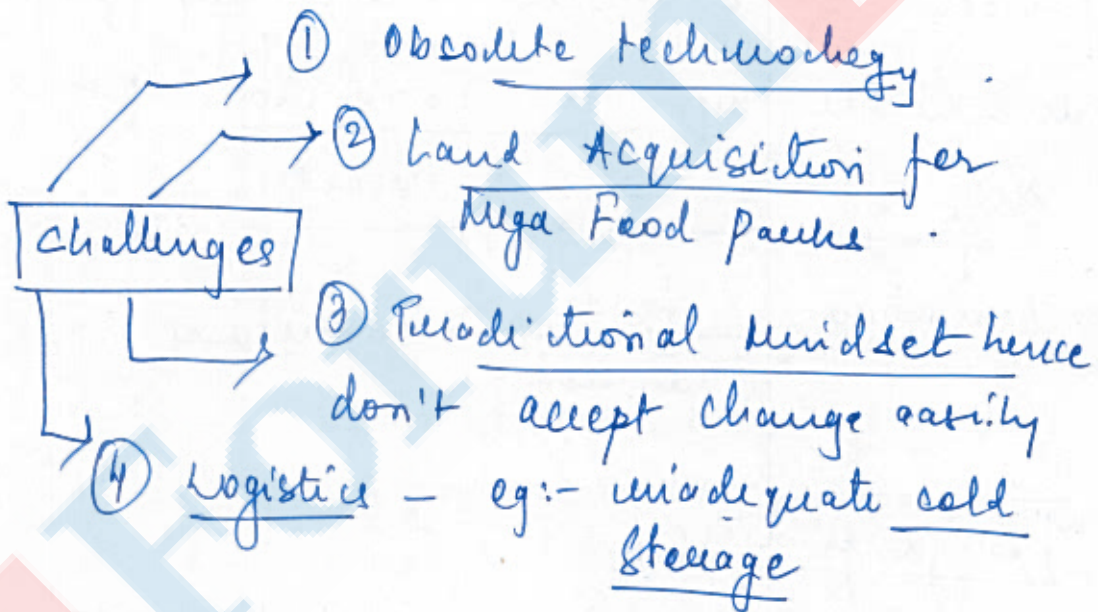 ① Obsolete technology.
② Land Acquisition for
Mega Food Parks.
Challenges
③ Traditional mindset hence
don't accept change easily
④ Logistics – eg:- inadequate cold
storage
Forum